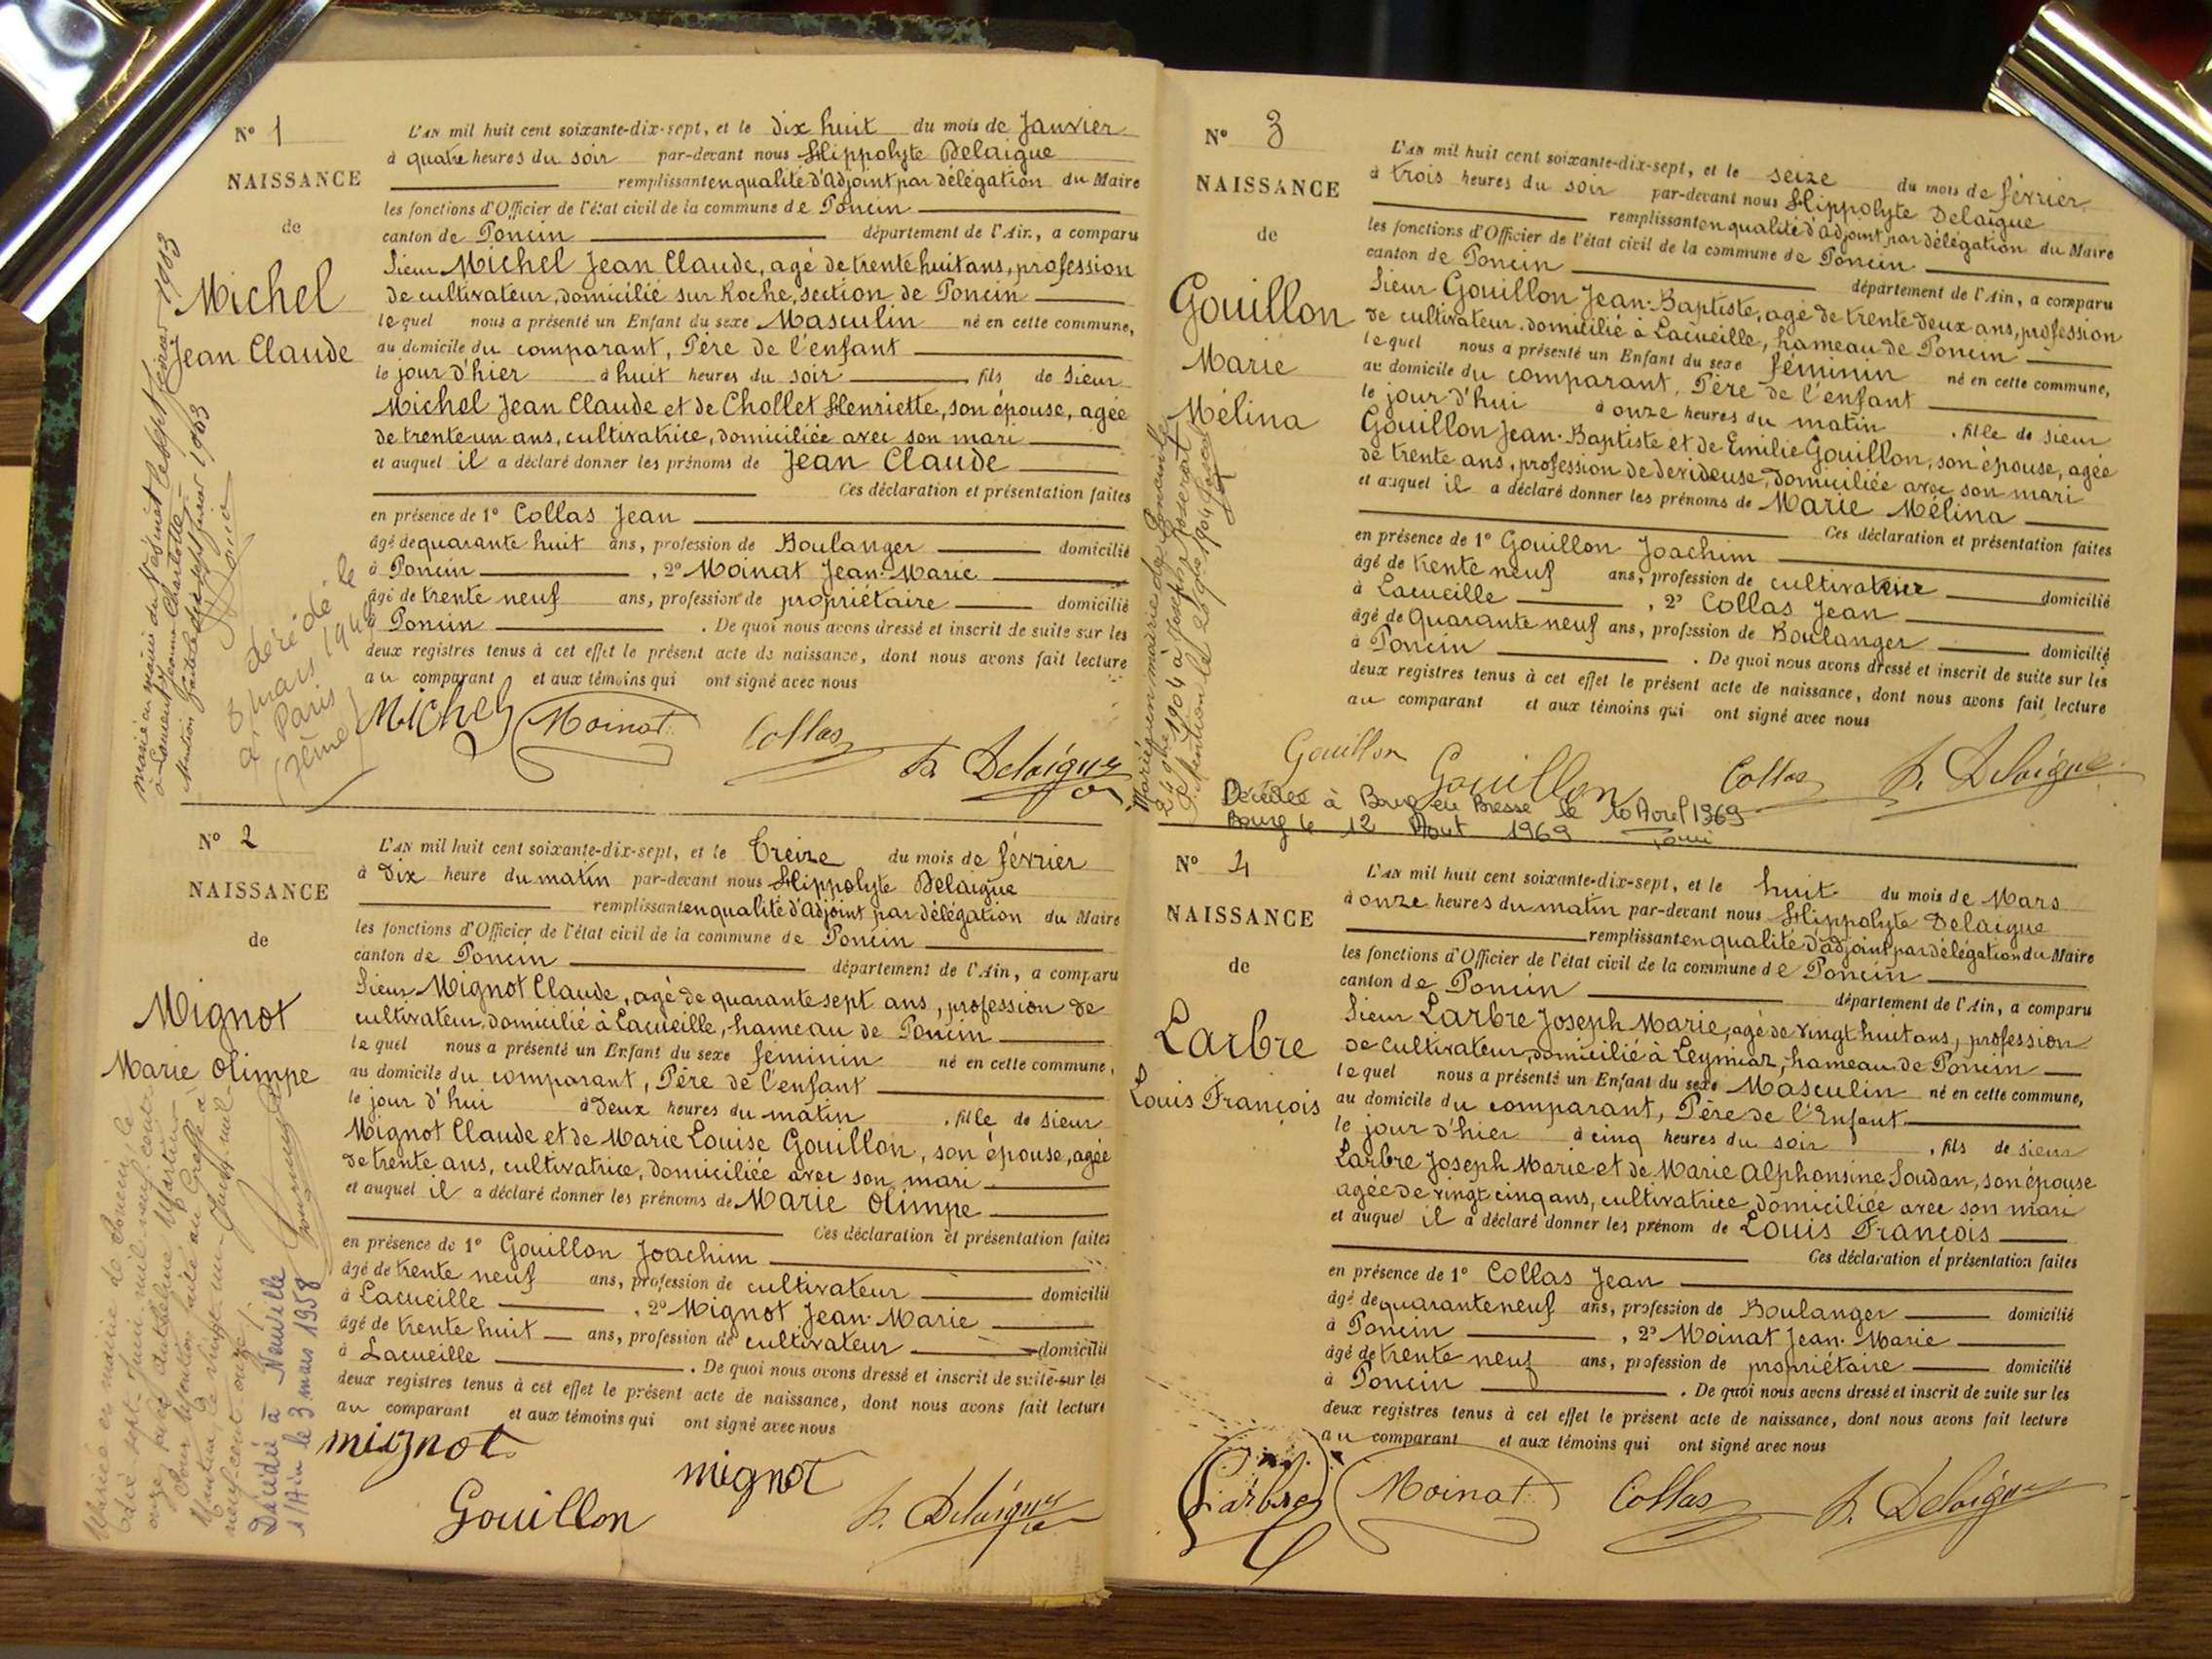 N° 1
NAISSANCE
de
Michel
Jean Claude
L'AN mil huit cent soixante-dix-sept, et le dix huit du mois de Janvier
à quatre heures du soir par-devant nous Hippolyte Delaigue
remplissant en qualité d'Adjoint par délégation du Maire
les fonctions d'Officier de l'état civil de la commune de Poncin
canton de Poncin département de l'Ain, a comparu
Sieur Michel Jean Claude, agé de trente huit ans, profession
de cultivateur, domicilié sur Roche, section de Poncin
lequel nous a présenté un Enfant du sexe Masculin né en cette commune,
au domicile du comparant, Père de l'enfant
le jour d'hier à huit heures du soir fils de Sieur
Michel Jean Claude et de Chollet Henriette, son épouse, agée
de trente un ans, cultivatrice, domiciliée avec son mari
et auquel il a déclaré donner les prénoms de Jean Claude
Ces déclaration et présentation faites
en présence de 1° Collas Jean
âgé de quarante huit ans, profession de Boulanger domicilié
à Poncin , 2° Moinat Jean-Marie
âgé de trente neuf ans, profession de propriétaire domicilié
à Poncin . De quoi nous avons dressé et inscrit de suite sur les
deux registres tenus à cet effet le présent acte de naissance, dont nous avons fait lecture
au comparant et aux témoins qui ont signé avec nous
Michel Moinat Collas h. Delaigue
marié en mairie du le sept février 1903
à Jeanne Charlotte
Mention faite le dix sept février 1903
décédé le
8 mars 194
à Paris
N° 2
NAISSANCE
de
Mignot
Marie Olimpe
L'AN mil huit cent soixante-dix-sept, et le Treize du mois de février
à dix heure du matin par-devant nous Hippolyte Delaigue
remplissant en qualité d'Adjoint par délégation du Maire
les fonctions d'Officier de l'état civil de la commune de Poncin
canton de Poncin département de l'Ain, a comparu
Sieur Mignot Claude, agé de quarante sept ans, profession de
cultivateur, domicilié à Lacueille, hameau de Poncin
lequel nous a présenté un Enfant du sexe féminin né en cette commune,
au domicile du comparant, Père de l'enfant
le jour d'hui à deux heures du matin , fille de Sieur
Mignot Claude et de Marie Louise Gouillon, son épouse, agée
de trente ans, cultivatrice, domiciliée avec son mari
et auquel il a déclaré donner les prénoms de Marie Olimpe
Ces déclaration et présentation faites
en présence de 1° Gouillon Joachim
âgé de trente neuf ans, profession de cultivateur domicilié
à Lacueille , 2° Mignot Jean-Marie
âgé de trente huit ans, profession de cultivateur domicilié
à Lacueille . De quoi nous avons dressé et inscrit de suite sur les
deux registres tenus à cet effet le présent acte de naissance, dont nous avons fait lecture
au comparant et aux témoins qui ont signé avec nous
mignot
Gouillon mignot h. Delaigue
Mariée en mairie de Poncin, le
dix-sept Juin mil neuf cent
onze
Pour Mention faite au Greffe à
Nantua le vingt un Juin mil
neuf cent onze
Décédée à Neuville
s/Ain le 3 mars 1958
N° 3
NAISSANCE
de
Gouillon
Marie
Mélina
L'AN mil huit cent soixante-dix-sept, et le seize du mois de février
à trois heures du soir par-devant nous Hippolyte Delaigue
remplissant en qualité d'Adjoint par délégation du Maire
les fonctions d'Officier de l'état civil de la commune de Poncin
canton de Poncin département de l'Ain, a comparu
Sieur Gouillon Jean-Baptiste, agé de trente deux ans, profession
de cultivateur, domicilié à Lacueille, hameau de Poncin
lequel nous a présenté un Enfant du sexe féminin né en cette commune,
au domicile du comparant, Père de l'enfant
le jour d'hui à onze heures du matin , fille de Sieur
Gouillon Jean-Baptiste et de Emilie Gouillon, son épouse, agée
de trente ans, profession de devideuse, domiciliée avec son mari
et auquel il a déclaré donner les prénoms de Marie Mélina
Ces déclaration et présentation faites
en présence de 1° Gouillon Joachim
âgé de trente neuf ans, profession de cultivateur domicilié
à Lacueille , 2° Collas Jean
âgé de quarante neuf ans, profession de Boulanger domicilié
à Poncin . De quoi nous avons dressé et inscrit de suite sur les
deux registres tenus à cet effet le présent acte de naissance, dont nous avons fait lecture
au comparant et aux témoins qui ont signé avec nous
Gouillon Gouillon Collas h. Delaigue
Mariée en mairie de Poncin le
Décédée à Bourg en Bresse le 10 Aout 1969
Bourg le 12 Aout 1969
N° 4
NAISSANCE
de
Larbre
Louis François
L'AN mil huit cent soixante-dix-sept, et le huit du mois de Mars
à onze heures du matin par-devant nous Hippolyte Delaigue
remplissant en qualité d'adjoint par délégation du Maire
les fonctions d'Officier de l'état civil de la commune de Poncin
canton de Poncin département de l'Ain, a comparu
Sieur Larbre Joseph Marie, agé de vingt huit ans, profession
de cultivateur, domicilié à Leymiaz, hameau de Poncin
lequel nous a présenté un Enfant du sexe Masculin né en cette commune,
au domicile du comparant, Père de l'Enfant
le jour d'hier à cinq heures du soir , fils de Sieur
Larbre Joseph Marie et de Marie Alphonsine Soudan, son épouse
agée de vingt cinq ans, cultivatrice, domiciliée avec son mari
et auquel il a déclaré donner les prénom de Louis François
Ces déclaration et présentation faites
en présence de 1° Collas Jean
âgé de quarante neuf ans, profession de Boulanger domicilié
à Poncin , 2° Moinat Jean-Marie
âgé de trente neuf ans, profession de propriétaire domicilié
à Poncin . De quoi nous avons dressé et inscrit de suite sur les
deux registres tenus à cet effet le présent acte de naissance, dont nous avons fait lecture
au comparant et aux témoins qui ont signé avec nous
Larbre Moinat Collas h. Delaigue